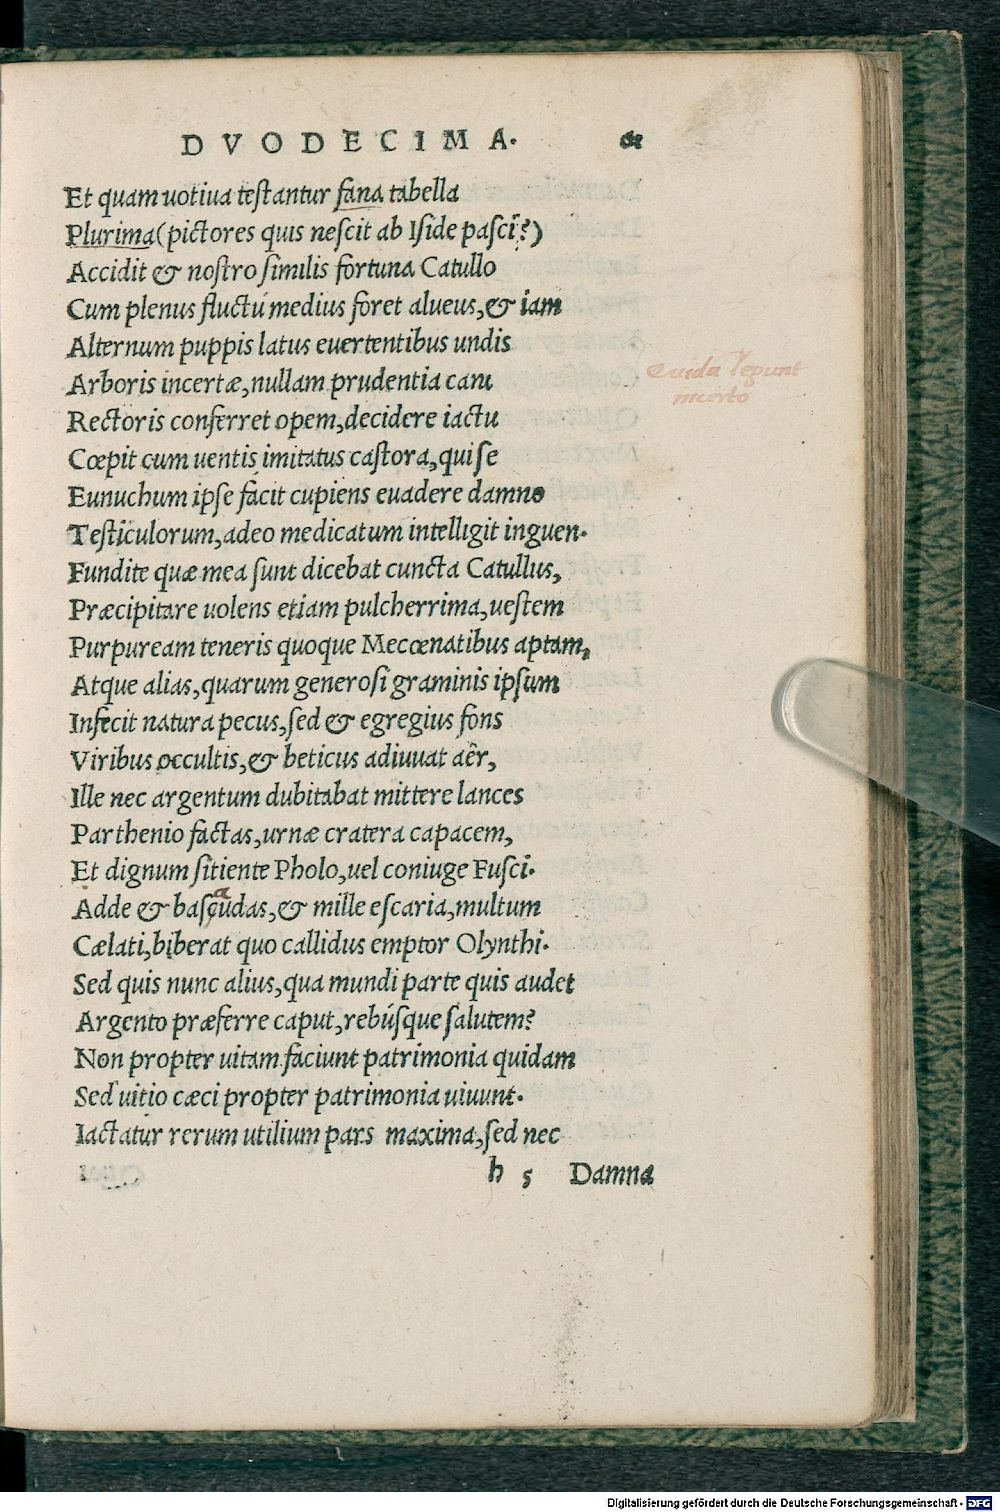 DVODECIMA. 61
Et quam uotiua testantur fana tabella
Plurima(pictores quis nescit ab Iside pasci?)
Accidit & nostro similis fortuna Catullo
Cum plenus fluctu medius foret alueus,& iam
Alternum puppis latus euertentibus undis
Arboris incertæ,nullam prudentia cani
Rectoris conferret opem,decidere iactu
Cœpit cum uentis imitatus castora,qui se
Eunuchum ipse facit cupiens euadere damno
Testiculorum,adeo medicatum intelligit inguen.
Fundite quæ mea sunt dicebat cuncta Catullus,
Præcipitare uolens etiam pulcherrima,uestem
Purpuream teneris quoque Mecœnatibus aptam,
Atque alias,quarum generosi graminis ipsum
Infecit natura pecus,sed & egregius fons
Viribus occultis,& beticus adiuuat aër,
Ille nec argentum dubitabat mittere lances
Parthenio factas,urnæ cratera capacem,
Et dignum sitiente Pholo,uel coniuge Fusci.
Adde & bascaudas,& mille escaria,multum
Cælati,biberat quo callidus emptor Olynthi.
Sed quis nunc alius,qua mundi parte quis audet
Argento præferre caput,rebúsque salutem?
Non propter uitam faciunt patrimonia quidam
Sed uitio cæci propter patrimonia uiuunt.
Iactatur rerum utilium pars maxima,sed nec
h 5 Damna
Quida legunt
incerto
Digitalisierung gefördert durch die Deutsche Forschungsgemeinschaft - DFG